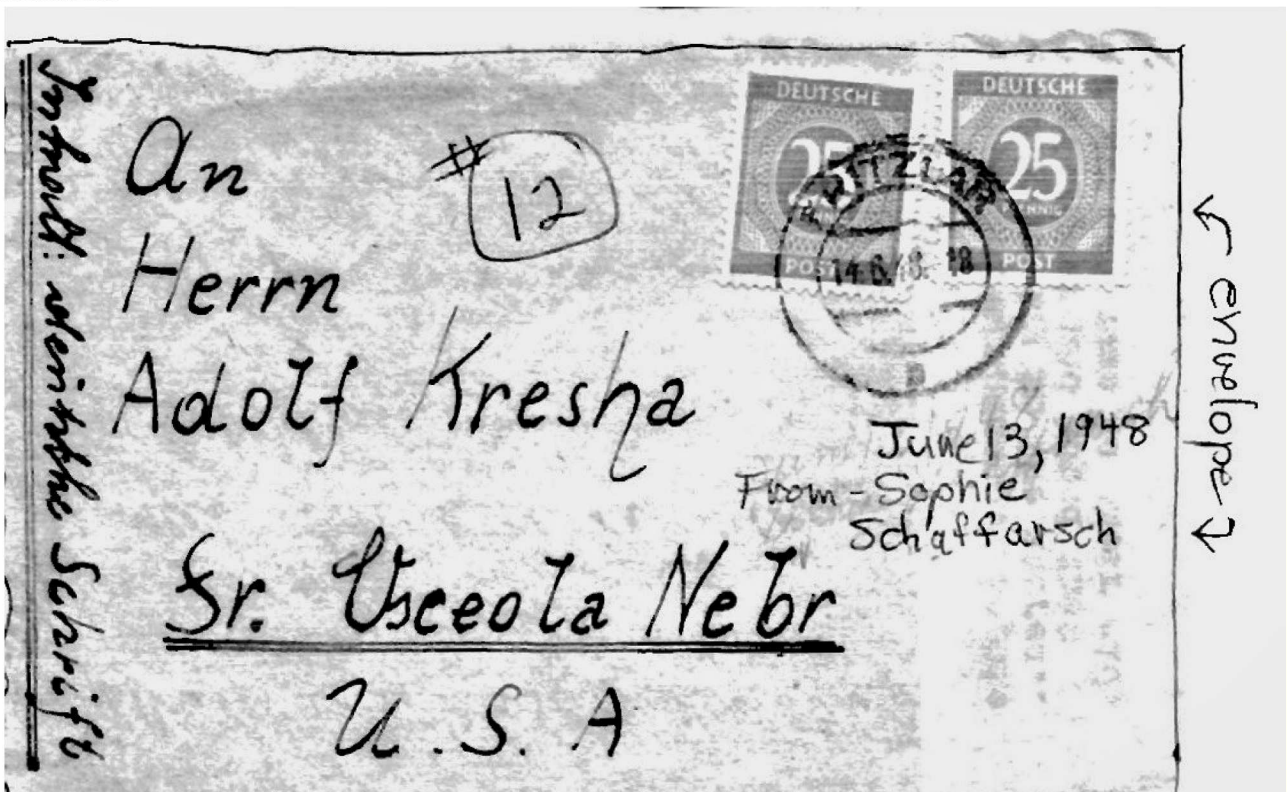 Inhalt: deutsche Schrift
An
Herrn
Adolf Kresha
Sr. Osceola Nebr
U. S. A
# 12
DEUTSCHE
25
PFENNIG
POST
DEUTSCHE
25
PFENNIG
POST
FRITZLAR
14.6.48. 18
June 13, 1948
From - Sophie
Schaffarsch
← envelope →